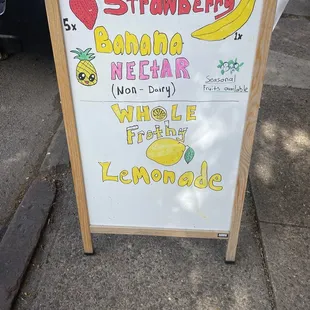 Strawberry
5x
1x
Banana
NECTAR
(Non - Dairy)
Seasonal
fruits available
WHOLE
Frothy
Lemonade